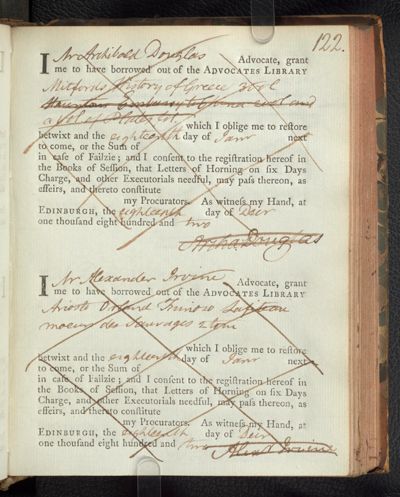 122.
I Mr Archibald Douglas Advocate, grant
me to have borrowed out of the ADVOCATES LIBRARY
Mitfords History of Greece 3 vol
Staunton Embassy to China
a vol of
which I oblige me to reſtore
betwixt and the eighteenth day of Janr next
to come, or the Sum of
in caſe of Failzie; and I conſent to the regiſtration hereof in
the Books of Seſſion, that Letters of Horning on ſix Days
Charge, and other Executorials needful, may paſs thereon, as
effeirs, and thereto conſtitute
my Procurators. As witneſs my Hand, at
EDINBURGH, the eighteenth day of Decr
one thouſand eight hundred and two
Archd Douglas
I Mr Alexander Irvine Advocate, grant
me to have borrowed out of the ADVOCATES LIBRARY
Ariosto Orland Furioso Lafiteau
moeurs des Sauvages 2 tom
which I oblige me to reſtore
betwixt and the eighteenth day of Janr next
to come, or the Sum of
in caſe of Failzie; and I conſent to the regiſtration hereof in
the Books of Seſſion, that Letters of Horning on ſix Days
Charge, and other Executorials needful, may paſs thereon, as
effeirs, and thereto conſtitute
my Procurators. As witneſs my Hand, at
EDINBURGH, the eighteenth day of Decr
one thouſand eight hundred and two
Alexr Irvine